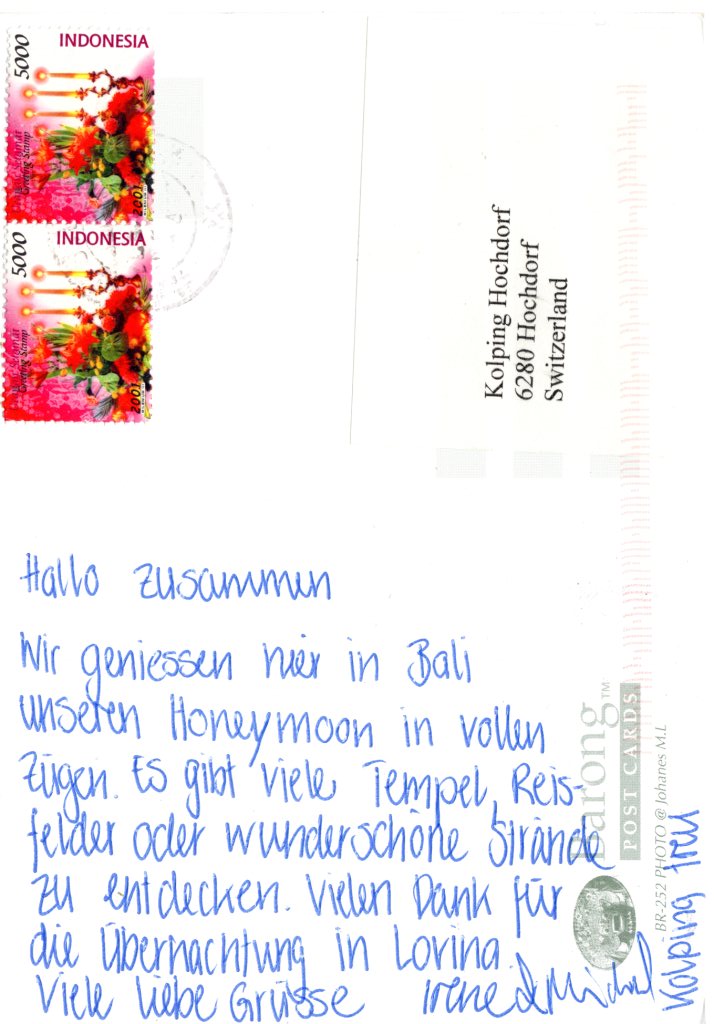 INDONESIA
5000
Greeting Stamp
2001
INDONESIA
5000
Greeting Stamp
2001
Kolping Hochdorf
6280 Hochdorf
Switzerland
Hallo zusammen
Wir geniessen hier in Bali
unseren Honeymoon in vollen
Zügen. Es gibt viele Tempel, Reis-
felder oder wunderschöne Strände
zu entdecken. Vielen Dank für
die Übernachtung in Lovina.
Viele liebe Grüsse Irene & Michael
Kolping treu
Barong™
POST CARDS
BR-252 PHOTO @ Johanes M.L